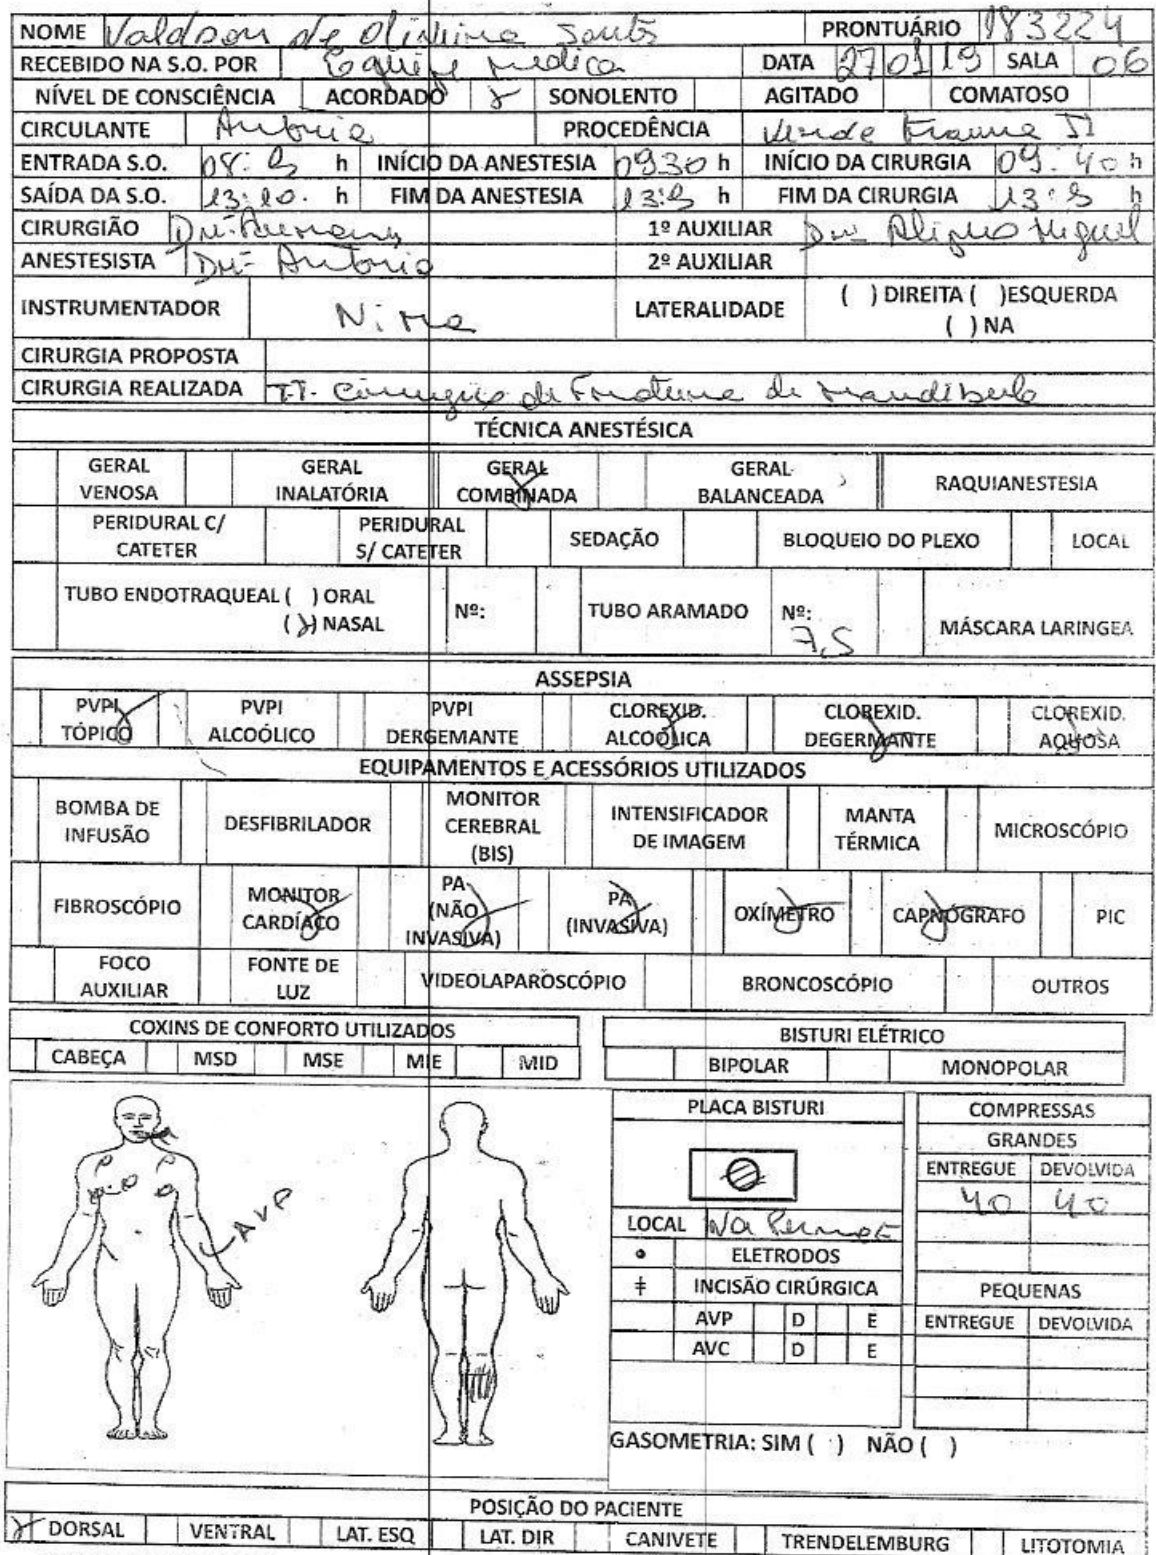 NOME Valdson de Oliveira Santos PRONTUÁRIO 183224
RECEBIDO NA S.O. POR Equipe medica DATA 27 01 19 SALA 06
NÍVEL DE CONSCIÊNCIA ACORDADO X SONOLENTO AGITADO COMATOSO
CIRCULANTE Antonia PROCEDÊNCIA Verde Trauma II
ENTRADA S.O. 08: h INÍCIO DA ANESTESIA 0930 h INÍCIO DA CIRURGIA 09:40 h
SAÍDA DA S.O. 13:10. h FIM DA ANESTESIA 13: h FIM DA CIRURGIA 13: h
CIRURGIÃO 1º AUXILIAR Miguel
ANESTESISTA Drº Antonio 2º AUXILIAR
INSTRUMENTADOR LATERALIDADE ( ) DIREITA ( )ESQUERDA
( ) NA
CIRURGIA PROPOSTA
CIRURGIA REALIZADA TT. Cirurgico de Fratura de Mandibula
TÉCNICA ANESTÉSICA
GERAL VENOSA GERAL INALATÓRIA GERAL COMBINADA X GERAL BALANCEADA RAQUIANESTESIA
PERIDURAL C/ CATETER PERIDURAL S/ CATETER SEDAÇÃO BLOQUEIO DO PLEXO LOCAL
TUBO ENDOTRAQUEAL ( ) ORAL
(X) NASAL Nº: TUBO ARAMADO Nº: 7,5 MÁSCARA LARINGEA
ASSEPSIA
PVPI TÓPICO X PVPI ALCOÓLICO PVPI DERGEMANTE CLOREXID. ALCOÓLICA X CLOREXID. DEGERMANTE X CLOREXID. AQUOSA X
EQUIPAMENTOS E ACESSÓRIOS UTILIZADOS
BOMBA DE INFUSÃO DESFIBRILADOR MONITOR CEREBRAL (BIS) INTENSIFICADOR DE IMAGEM MANTA TÉRMICA MICROSCÓPIO
FIBROSCÓPIO MONITOR CARDÍACO X PA (NÃO INVASIVA) X PA (INVASIVA) X OXÍMETRO X CAPNÓGRAFO X PIC
FOCO AUXILIAR FONTE DE LUZ VIDEOLAPAROSCÓPIO BRONCOSCÓPIO OUTROS
COXINS DE CONFORTO UTILIZADOS BISTURI ELÉTRICO
CABEÇA MSD MSE MIE MID BIPOLAR MONOPOLAR
PLACA BISTURI COMPRESSAS
GRANDES
ENTREGUE DEVOLVIDA
40 40
AVP
LOCAL Na Perna E
ELETRODOS
INCISÃO CIRÚRGICA PEQUENAS
AVP D E ENTREGUE DEVOLVIDA
AVC D E
GASOMETRIA: SIM ( ) NÃO ( )
POSIÇÃO DO PACIENTE
X DORSAL VENTRAL LAT. ESQ LAT. DIR CANIVETE TRENDELEMBURG LITOTOMIA